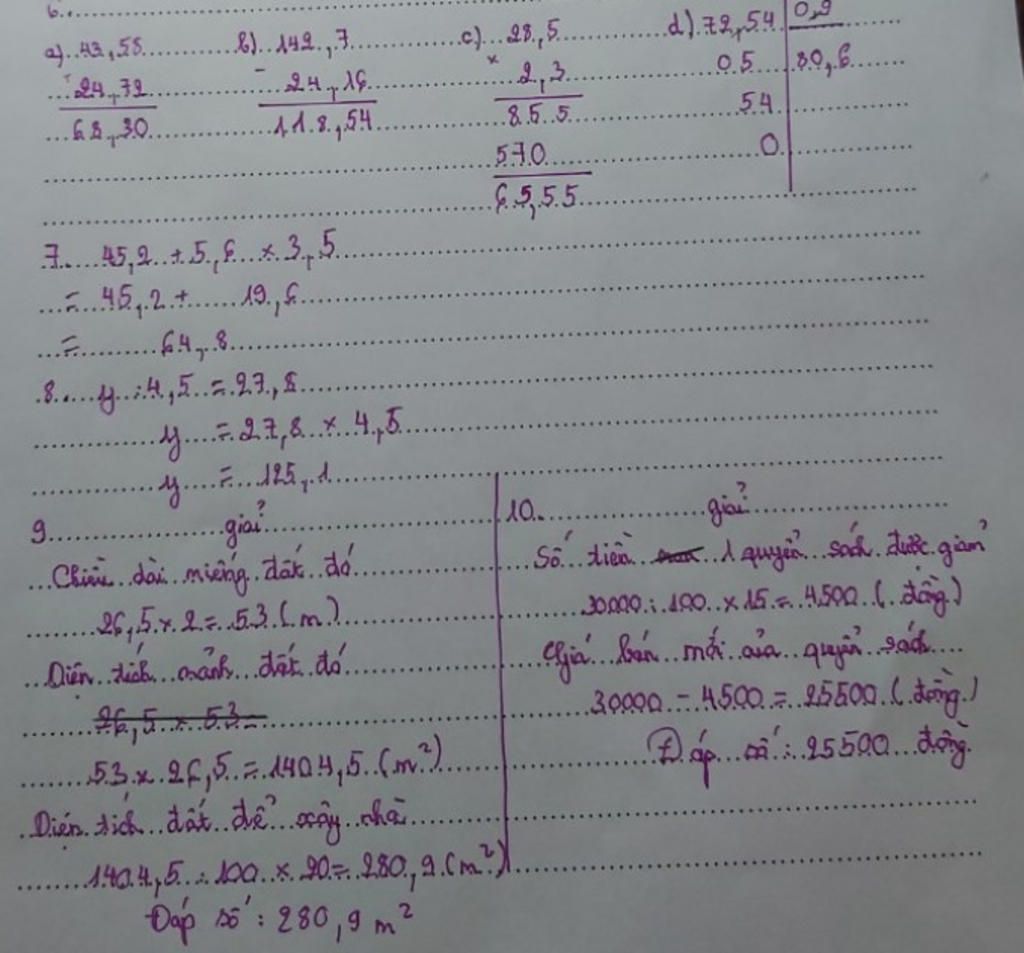 6.
a) 43,58 b) 142,7 c) 28,5 d) 72,54 0,9
+ 24,72 - 24,16 × 2,3 05 80,6
68,30 118,54 855 54
570 0
65,55
7. 45,2 + 5,6 × 3,5
= 45,2 + 19,6
= 64,8
8. y : 4,5 = 27,8
y = 27,8 × 4,5
y = 125,1
9. giải
Chiều dài miếng đất đó
26,5 × 2 = 53 (m)
Diện tích mảnh đất đó
26,5 × 53 =
53 × 26,5 = 1404,5 (m²)
Diện tích đất để xây nhà
1404,5 : 100 × 20 = 280,9 (m²)
Đáp số : 280,9 m²
10. giải
Số tiền 1 quyển sách được giảm
30000 : 100 × 15 = 4500 (đồng)
Giá bán mới của quyển sách
30000 - 4500 = 25500 (đồng)
Đáp số : 25500 đồng